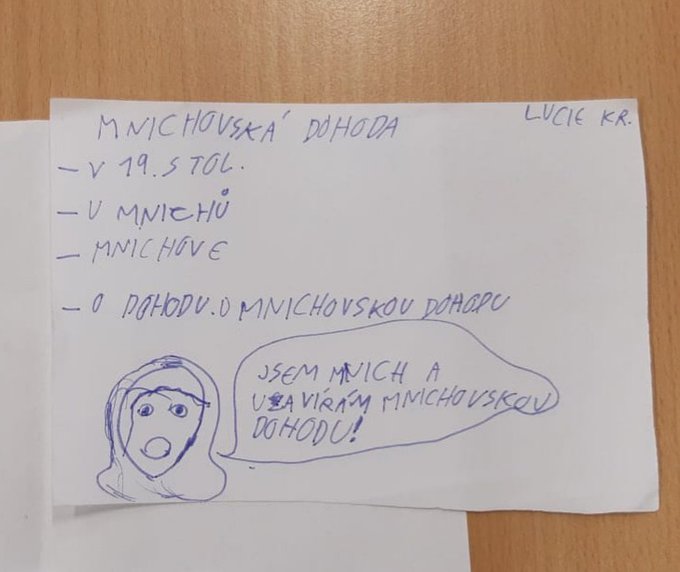 LUCIE KR.
MNICHOVSKÁ DOHODA
– V 19. STOL.
– U MNICHŮ
– MNICHOVÉ
– O DOHODU. O MNICHOVSKOU DOHODU
JSEM MNICH A
UZAVÍRÁM MNICHOVSKOU
DOHODU!